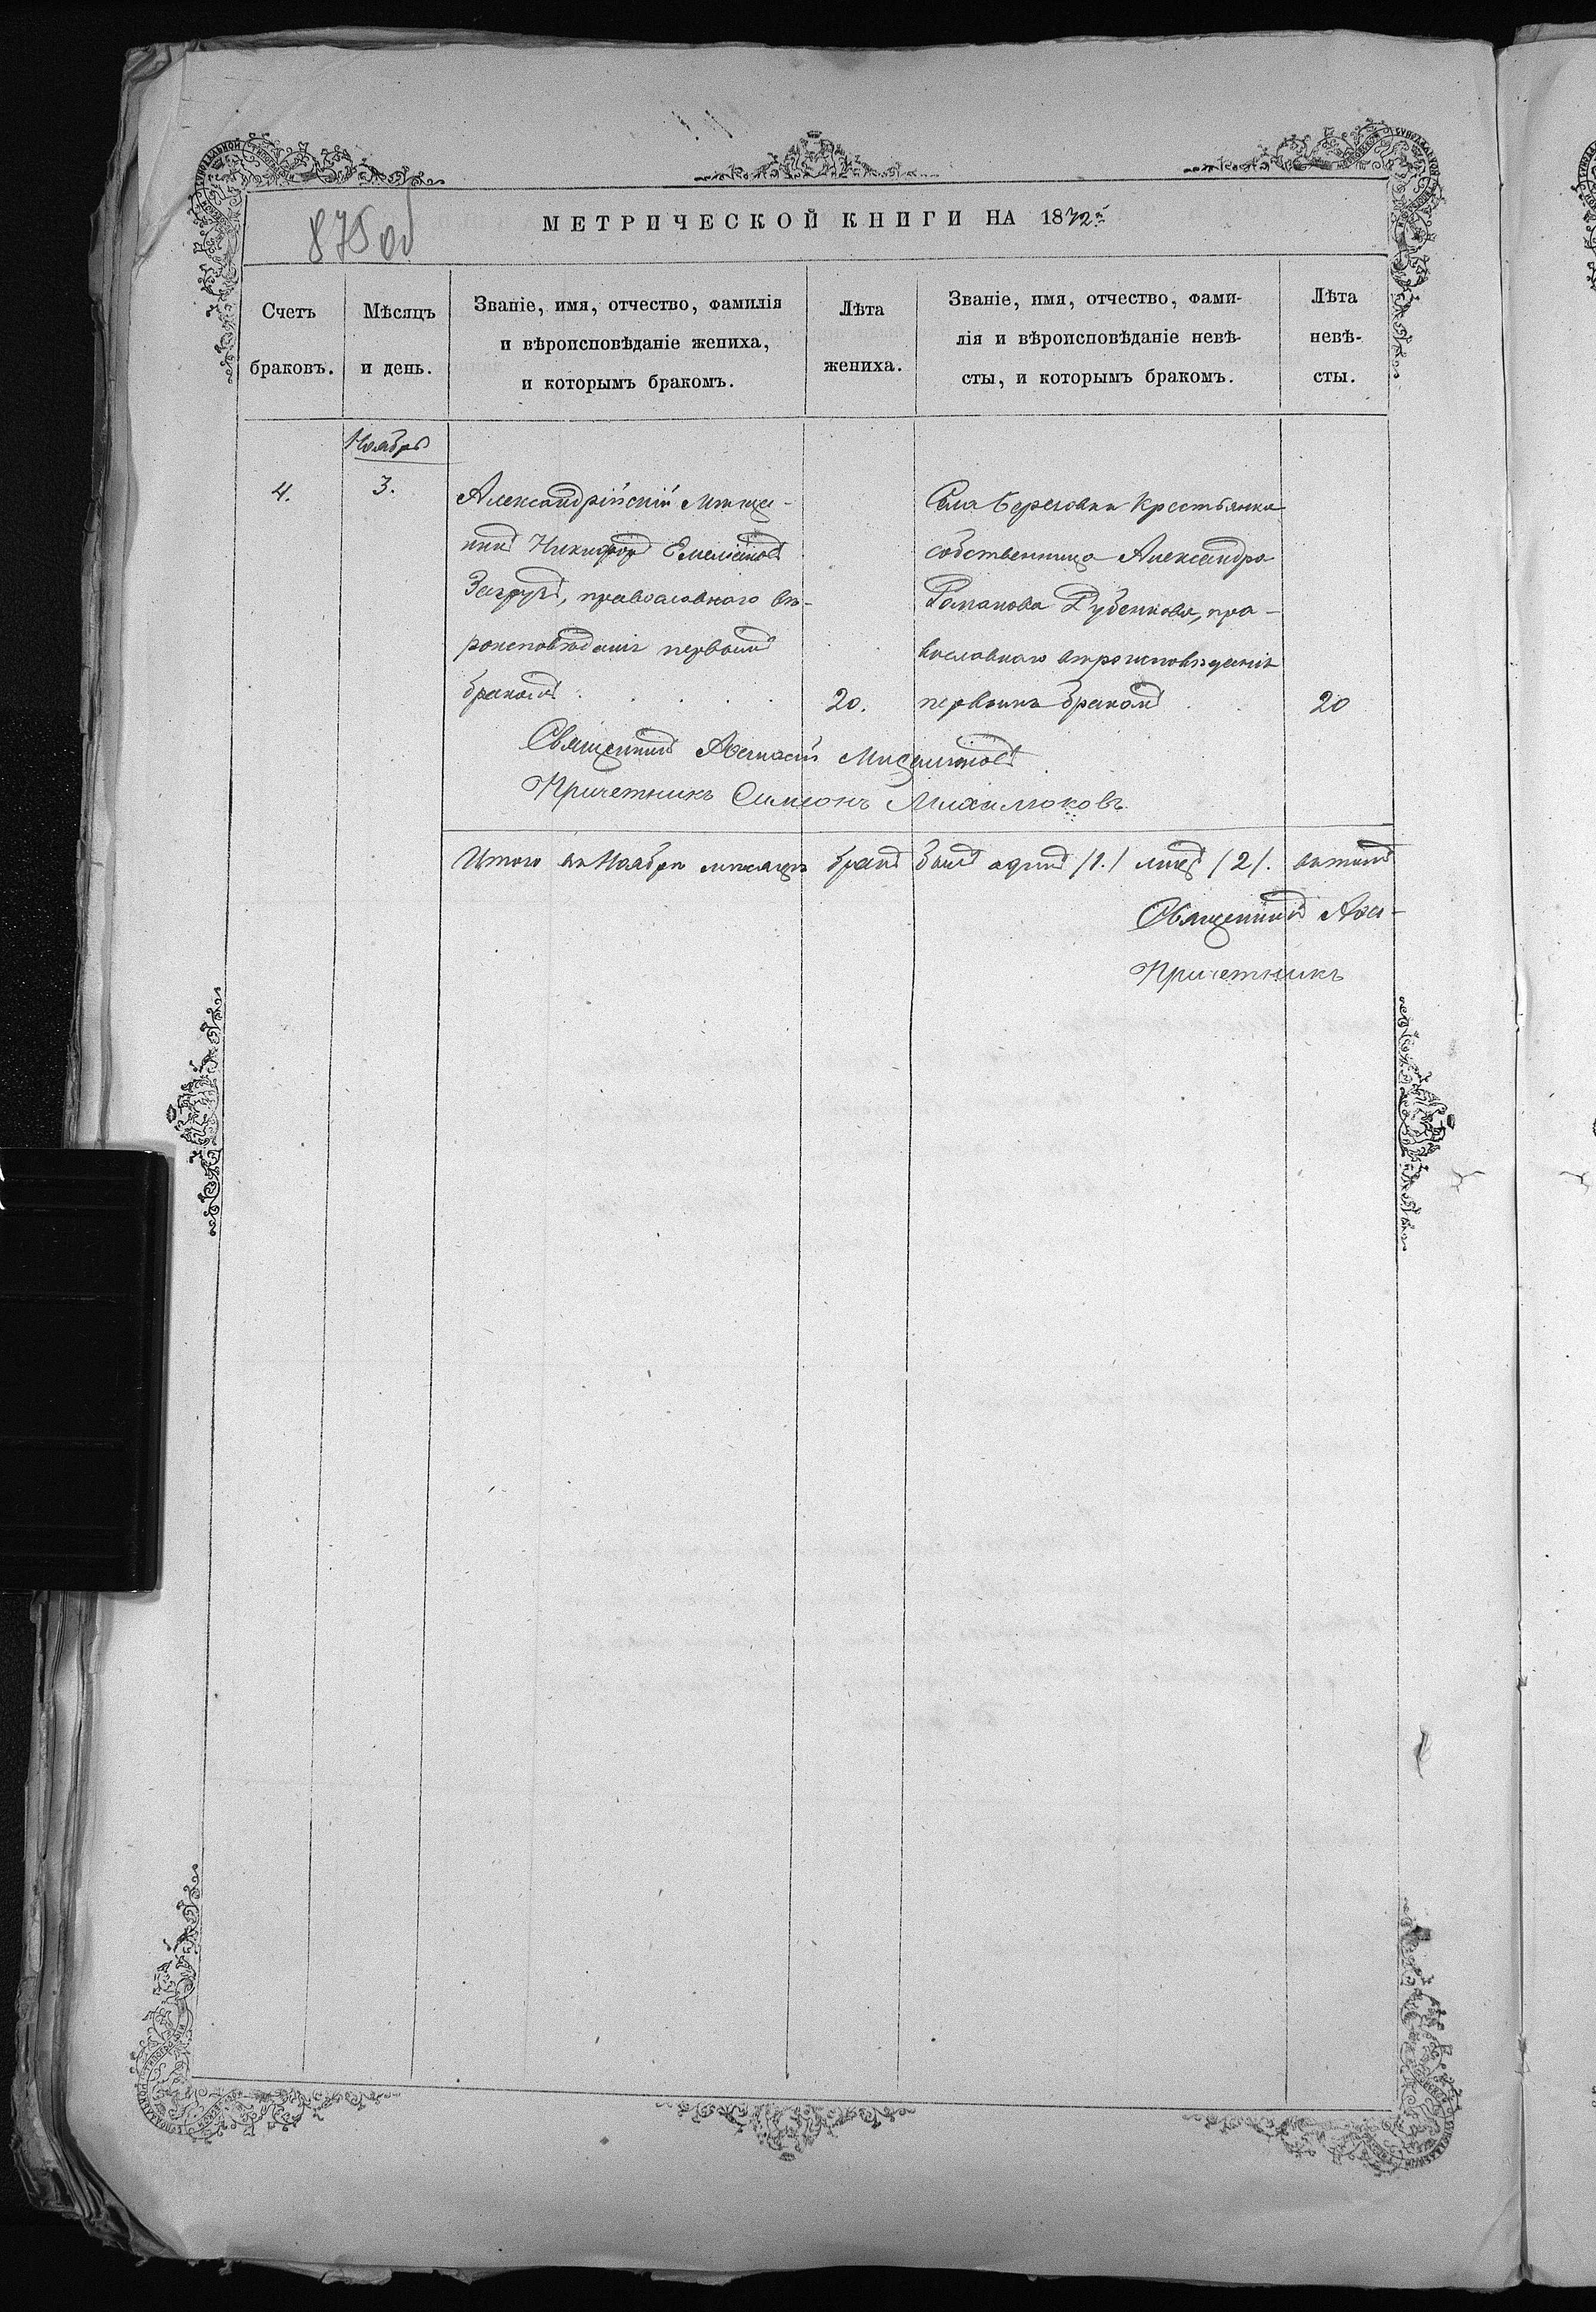 875 об
МЕТРИЧЕСКОЙ КНИГИ НА 1872й
Счетъ браковъ.
Мѣсяцъ и день.
Званіе, имя, отчество, фамилія
и вѣроисповѣданіе жениха,
и которымъ бракомъ.
Лѣта жениха.
Званіе, имя, отчество, фами-
лія и вѣроисповѣданіе невѣ-
сты, и которымъ бракомъ.
Лѣта
невѣ-
сты.
Ноябрь
4.
3.
Александрійскій мѣща-
нинъ Никифоръ Емеліановъ
православнаго вѣ-
роисповѣданія первымъ
бракомъ
20.
Села Березовки Крестьянка
собственница Александра
Романова Дубенкова, пра-
вославнаго вѣроисповѣданія
первымъ бракомъ
20
Священникъ Аѳанасій
Причетникъ Симеонъ Михалюковъ
Итого въ Ноябрѣ мѣсяцѣ бракъ былъ одинъ /1./ лицъ /2/.
Священникъ Аѳа-
Причетникъ